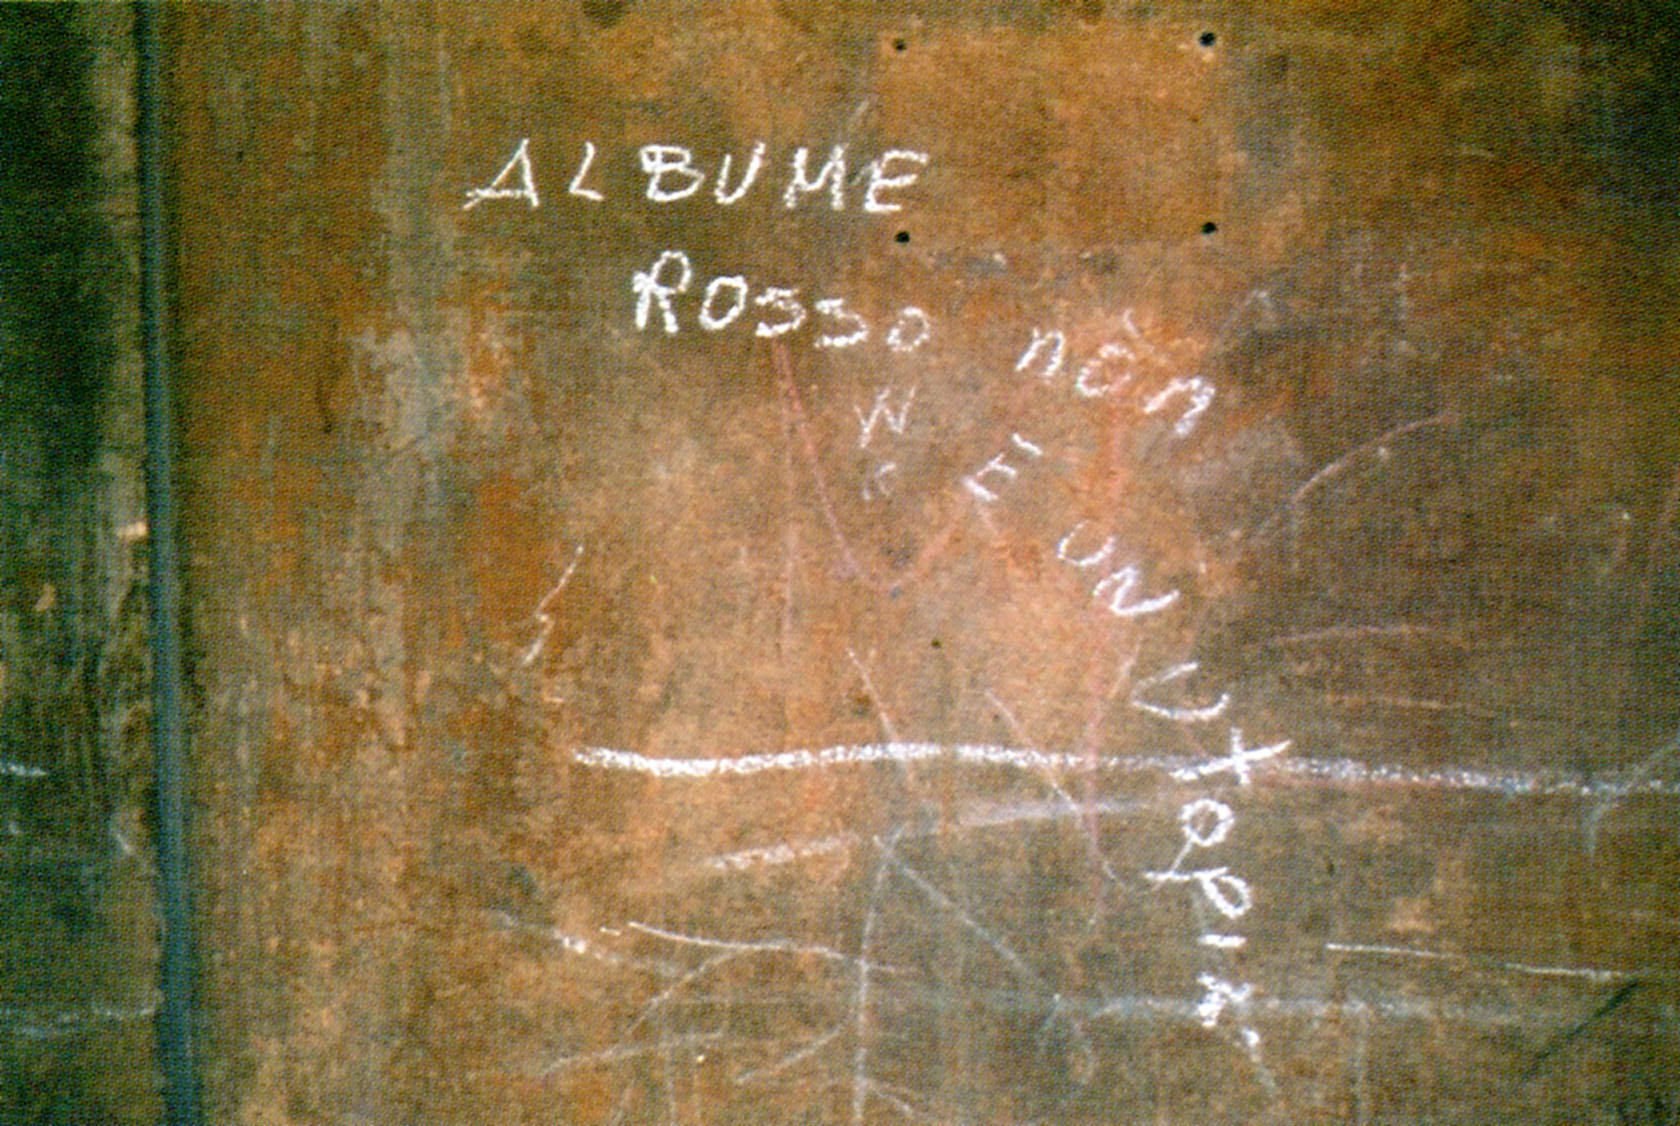 ALBUME
ROSSO nON
W
E' UN
UTOPIA